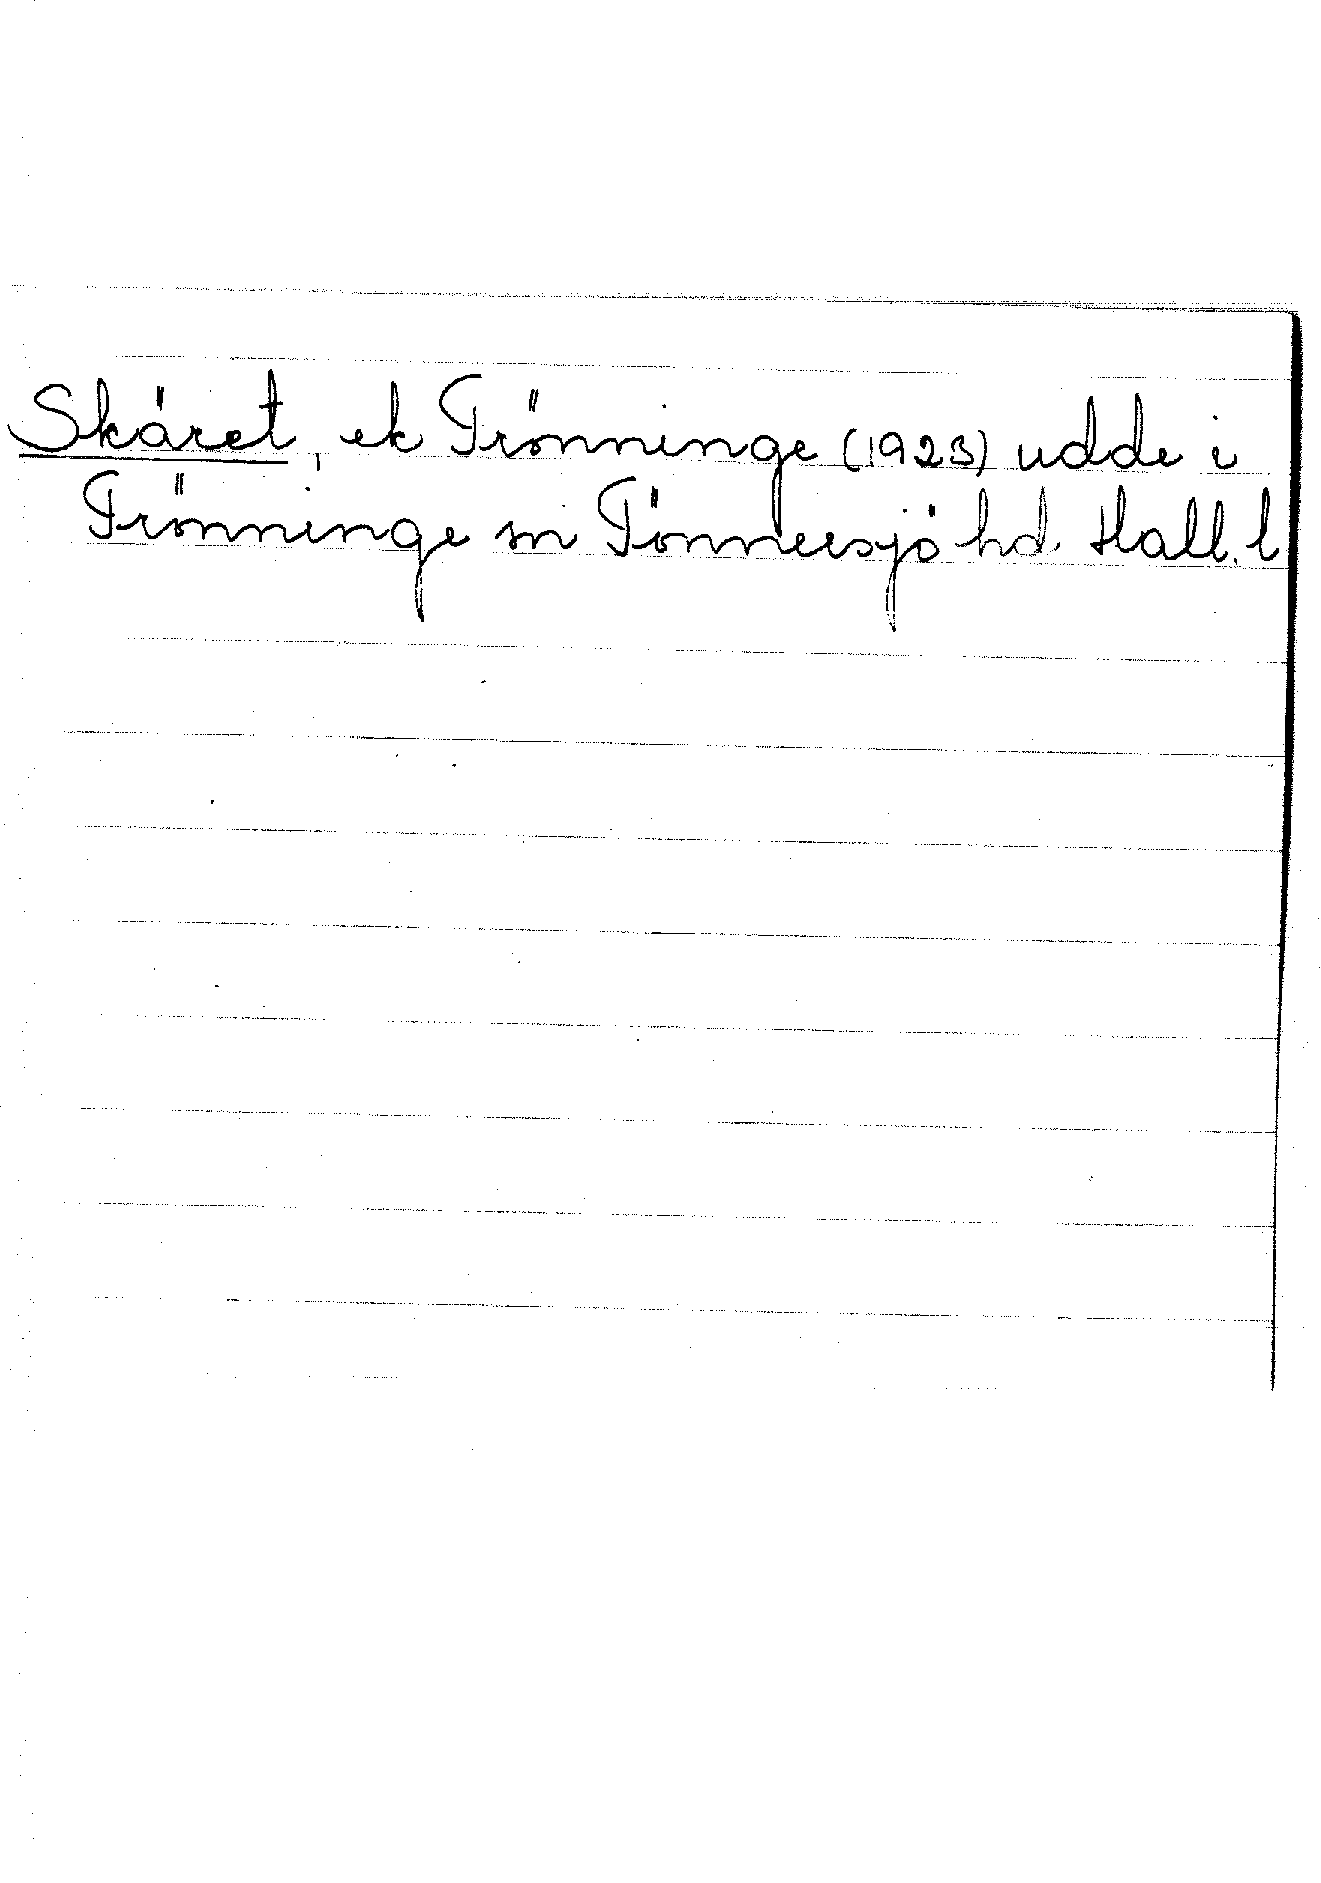 Skäret, ek Trönninge (1923) udde i
Trönninge sn Tönnersjö hd. Hall. l